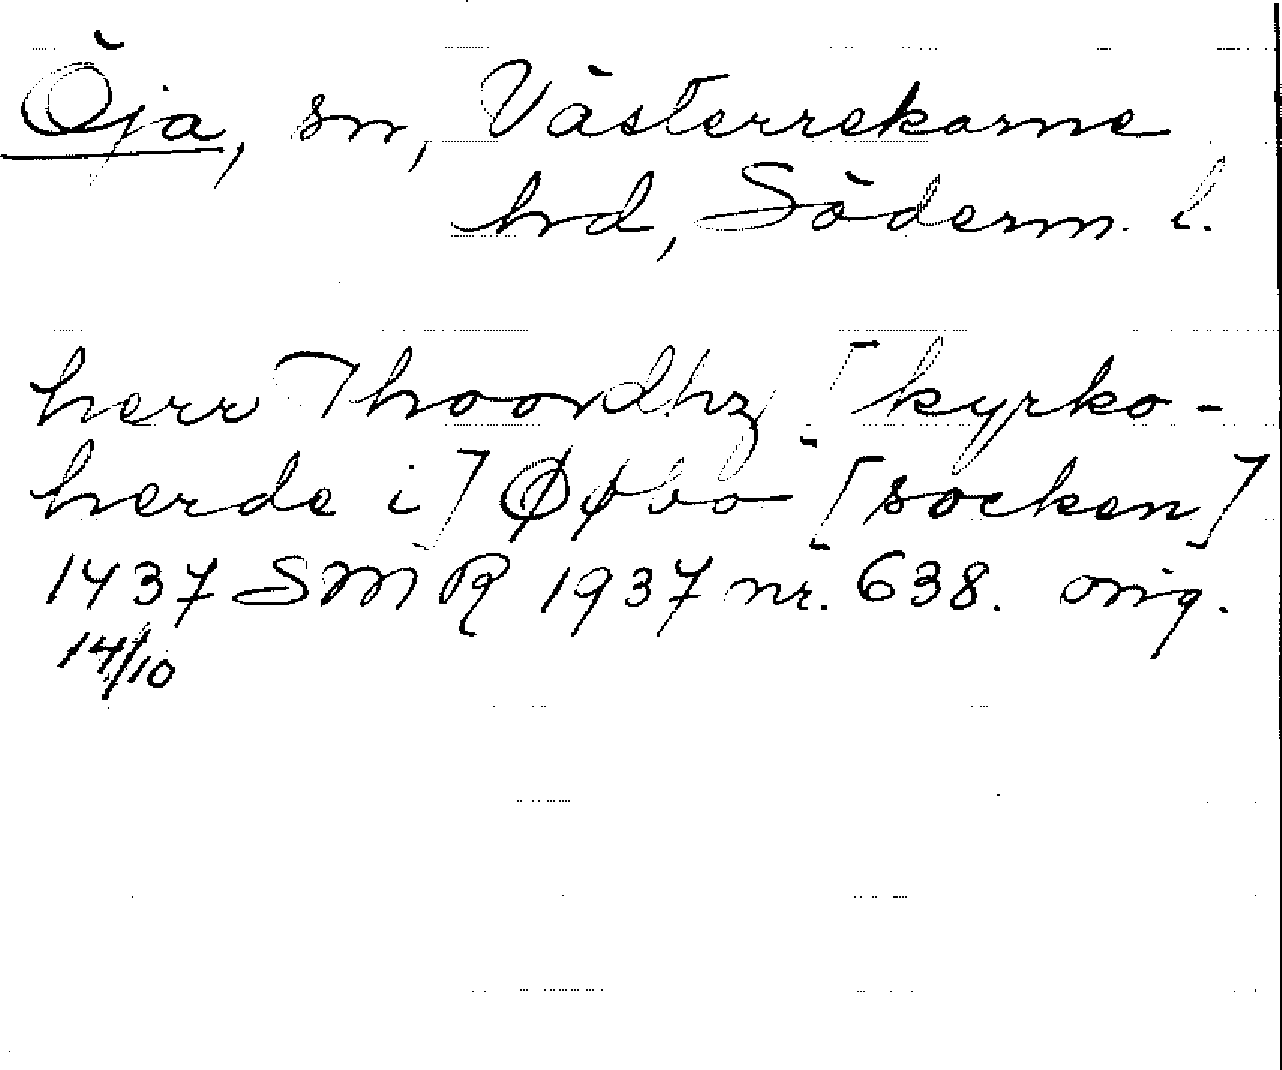 Öja, sn, Västerrekarne
hrd, Söderm. l.
herr Thoordhz [kyrko-
herde i] Øøbo [socken]
1437 SMR 1937 nr. 638. orig.
14/10